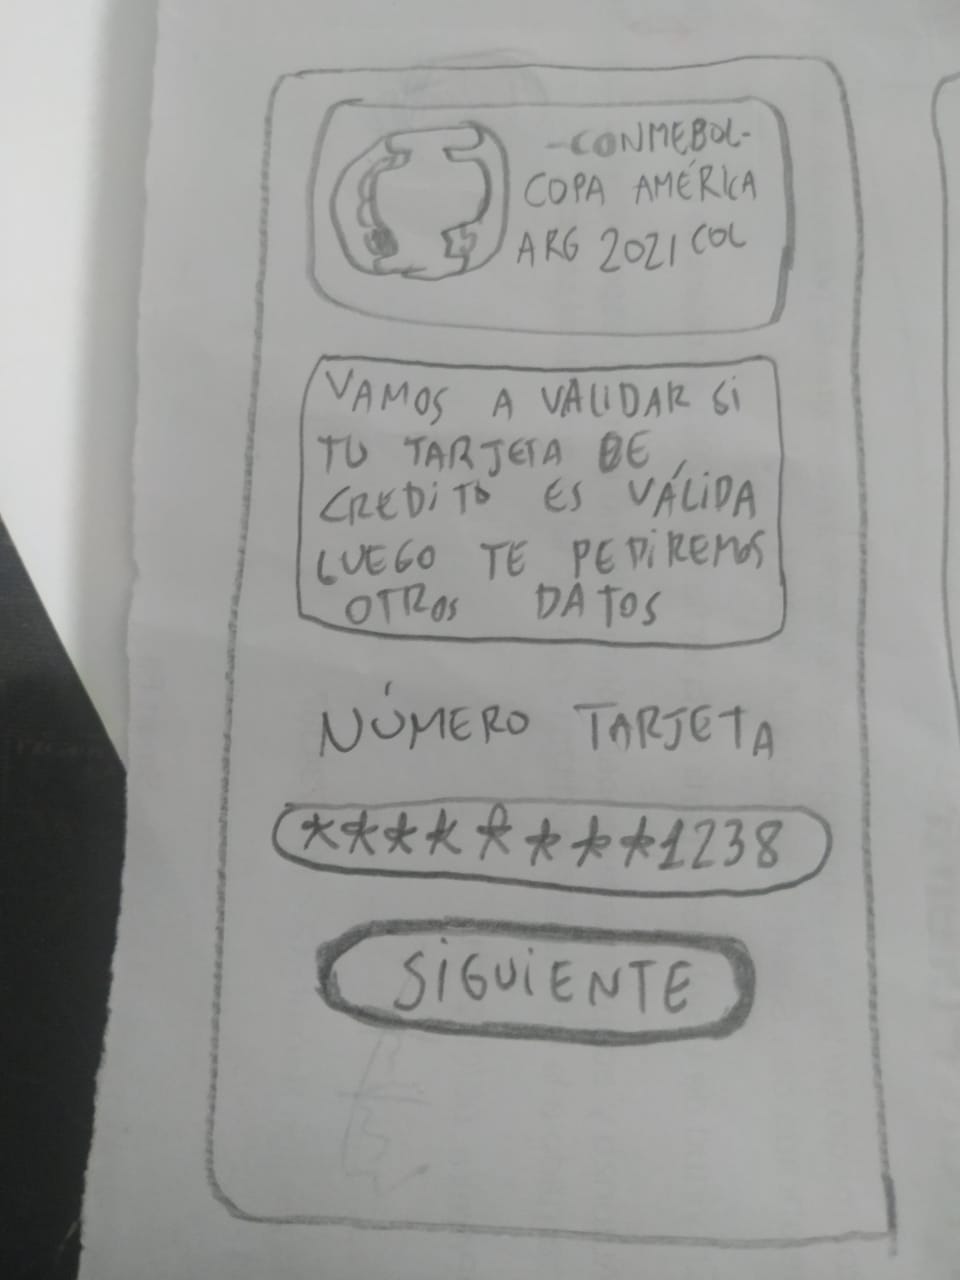 -CONMEBOL-
COPA AMÉRICA
ARG 2021 COL
VAMOS A VALIDAR SI
TU TARJETA DE
CREDITO ES VÁLIDA
LUEGO TE PEDIREMOS
OTROS DATOS
NÚMERO TARJETA
********1238
SIGUIENTE